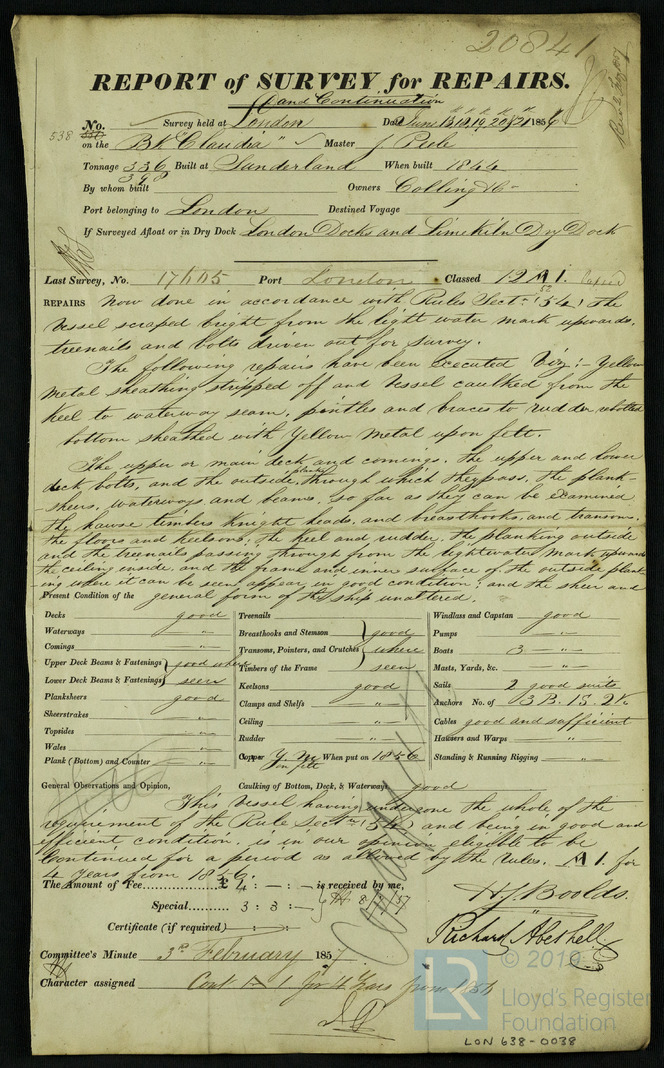 20841
REPORT of SURVEY for REPAIRS.
and Continuation
No. Survey held at London Date June 13, 14, 19, 20 & 21 1856
538
on the Bk "Claudia" Master J. Peele
Tonnage 336 Built at Sunderland When built 1844
398
By whom built Owners Colling & Co
Port belonging to London Destined Voyage
If Surveyed Afloat or in Dry Dock London Docks and Lime Kiln Dry Dock
Last Survey, No. 17605 Port London Classed 12 A 1.
REPAIRS Now done in accordance with Rules Sectn 54; the
Vessel scraped bright from the light water mark upwards.
treenails and bolts driven out for survey.
The following repairs have been executed Viz:- Yellow
metal sheathing stripped off and Vessel caulked from the
Keel to waterway seam. pintles and braces to rudder
bottom sheathed with Yellow metal upon felt.
The upper or main deck and comings, the upper and lower
deck bolts, and the outside planks through which they pass, the plank-
sheers, waterways and beams, so far as they can be examined
the hawse timbers Knight heads, and breasthooks, and transoms,
the floors and keelsons, the keel and rudder, the planking outside
and the treenails passing through from the lightwater mark upwards
the ceiling inside, and the frame and inner surface of the outside plank-
ing where it can be seen, appear in good condition; and the sheer and
Present Condition of the general form of the ship unaltered.
Decks good
Waterways "
Comings "
Upper Deck Beams & Fastenings } good where
Lower Deck Beams & Fastenings } seen
Planksheers good
Sheerstrakes "
Topsides "
Wales "
Plank (Bottom) and Counter "
Treenails
Breasthooks and Stemson } good
Transoms, Pointers, and Crutches } where
Timbers of the Frame } seen
Keelsons good
Clamps and Shelfs "
Ceiling "
Rudder "
Copper Y. M. When put on 1856
on felt
Windlass and Capstan good
Pumps "
Boats 3 "
Masts, Yards, &c. "
Sails 2 good suits
Anchors No. of 3 B. 1 S. 2 K.
Cables good and sufficient
Hawsers and Warps "
Standing & Running Rigging "
General Observations and Opinion, Caulking of Bottom, Deck, & Waterways good
This Vessel having undergone the whole of the
requirement of the Rule Sectn 54, and being in good and
efficient condition, is in our opinion eligible to be
Continued for a period as allowed by the Rules. A 1. for
4 Years from 1856.
The Amount of Fee £ 4 : - : - is received by me,
Special 3 : 3 : - 8/2/57
Certificate (if required) : :
H. J. Boolds.
Richard Abethell
Committee's Minute 3rd February 1857
Character assigned Cont A 1 for 4 Years from 1856
© 2019
LR
Lloyd's Register
Foundation
LON 638-0038